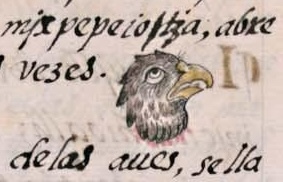 mjxpepeiotza, abre
vezes.
delas aues, sella